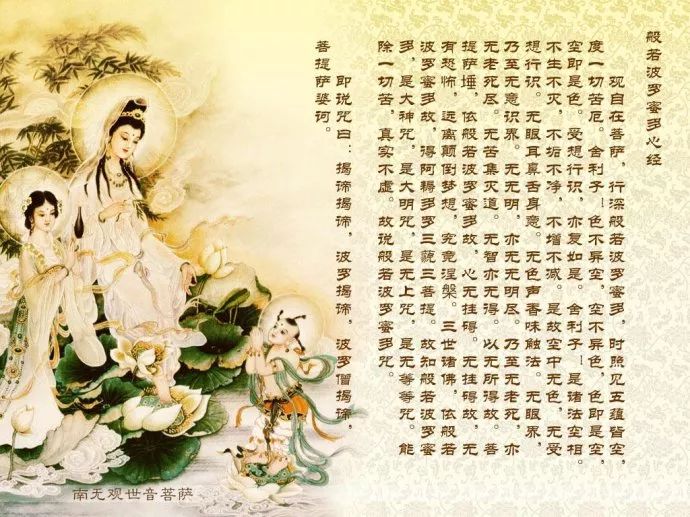 般若波罗蜜多心经
观自在菩萨，行深般若波罗蜜多，时照见五蕴皆空，
度一切苦厄。舍利子！色不异空，空不异色，色即是空，
空即是色。受想行识，亦复如是。舍利子！是诸法空相。
不生不灭，不垢不净，不增不减。是故空中无色，无受
想行识。无眼耳鼻舌身意。无色声香味触法。无眼界，
乃至无意识界。无无明，亦无无明尽。乃至无老死，亦
无老死尽。无苦集灭道。无智亦无得。以无所得故。菩
提萨埵，依般若波罗蜜多故，心无挂碍。无挂碍故，无
有恐怖，远离颠倒梦想，究竟涅槃。三世诸佛，依般若
波罗蜜多故，得阿耨多罗三藐三菩提。故知般若波罗蜜
多，是大神咒，是大明咒，是无上咒，是无等等咒。能
除一切苦，真实不虚。故说般若波罗蜜多咒。
即说咒曰：揭谛揭谛，波罗揭谛，波罗僧揭谛，
菩提萨婆诃。
南无观世音菩萨